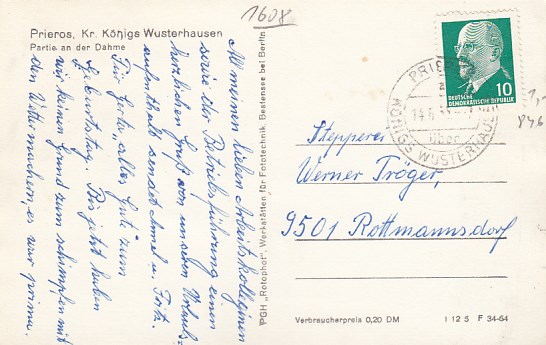 1608
Prieros, Kr. Königs Wusterhausen
Partie an der Dahme
All meinen lieben Arbeitskolleginen
sowie der Betriebsführung einen
herzlichen Gruß von unserem Urlaubs-
aufenthalt sendet u. Fritz.
Für alles Gute zum
Geburtstag. Bis jetzt haben
wir keinen Grund zum schimpfen mit
den Wetter machen, es war prima.
PGH „Rotophot", Werkstätten für Fototechnik, Bestensee bei Berlin
10
DEUTSCHE
DEMOKRATISCHE REPUBLIK
über
KÖNIGS WUSTERHAUSEN
Stepperei
Werner Tröger,
9501 Rottmannsdorf
Verbraucherpreis 0,20 DM
I 12 5 F 34-64